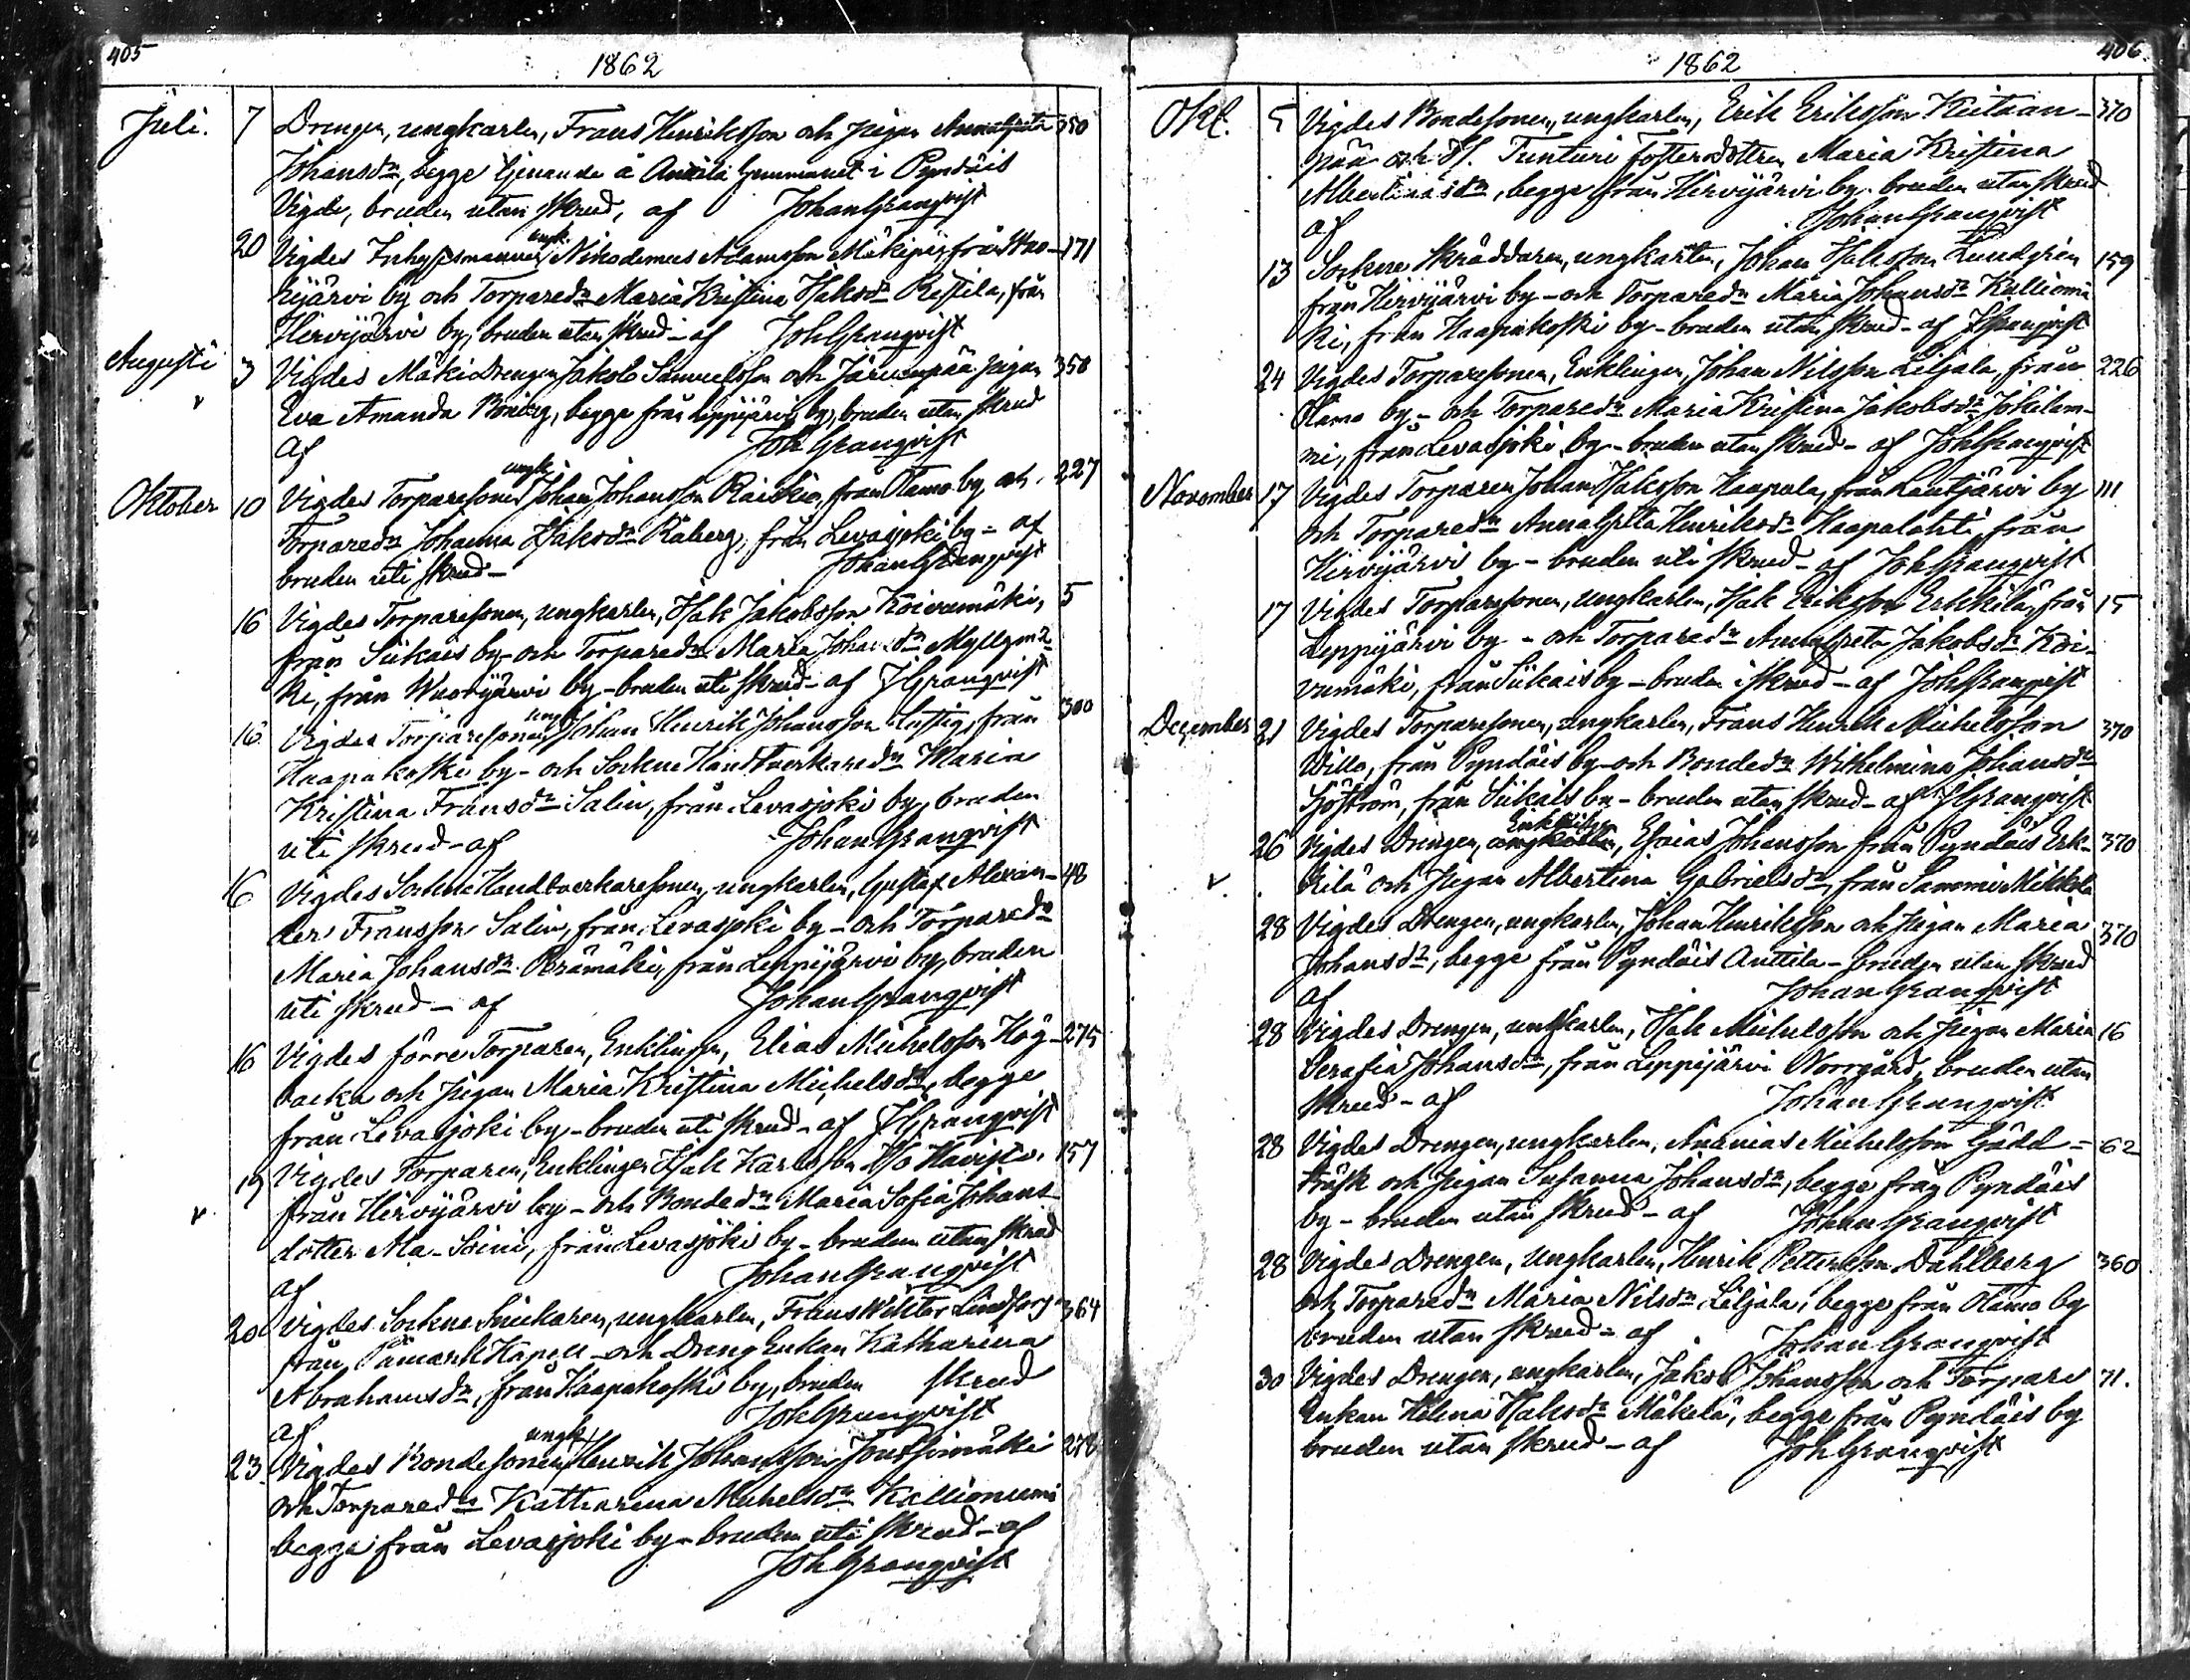 405
1862
Juli. 7 Drengen, ungkarlen, Frans Henriksson och pigan Annagreta 350
Johansdr, begge tjenande å Anttila hemmanet i Pyndäis
Vigde, bruden utan skrud, af Johan Granqvist
20 Vigdes Inhysesmannen ungk. Nikodemus Adamsson Mäkipää från Wuo- 171
rijärvi by och Torparedr Maria Kristina Isaksdr Ristila, från
Hirvijärvi by, bruden utan skrud - af Joh Granqvist
Augusti 3 Vigdes Mäki Drengen Jakob Samuelsson och Järvenpää pigan 350
Eva Amanda Boberg, begge från Leppijärvi by, bruden utan skrud
af Joh Granqvist
Oktober 10 Vigdes Torparesonen ungk. Johan Johansson Raiskio, från Otamo by och 227
Torparedr Johanna Isaksdr Råberg, från Levasjoki by - af
bruden uti skrud - Johan Granqvist
16 Vigdes Torparesonen, ungkarlen, Isak Jakobsson Koivumäki, 5
från Siikais by - och Torparedr Maria Johansdr Myllymä-
ki, från Wuorijärvi by - bruden uti skrud - af J Granqvist
16 Vigdes Torparesonen ungk. Johan Henrik Johansson Lustig, från 300
Haapakoski by - och Sockne Handtverkaredr Maria
Kristina Fransdr Salin, från Levasjoki by, bruden
uti skrud - af Johan Granqvist
16 Vigdes Sockne Handtverkaresonen, ungkarlen, Gustaf Alexan- 48
der Fransson Salin, från Levasjoki by - och Torparedr
Maria Johansdr Perämäki, från Leppijärvi by, bruden
uti skrud - af Johan Granqvist
16 Vigdes förre Torparen, Enklingen, Elias Michelsson Hög- 275
backa och pigan Maria Kristina Michelsdr, begge
från Levasjoki by - bruden uti skrud - af J Granqvist
19 Vigdes Torparen, Enklingen Isak Karlsson Iso Havisto, 157
från Hirvijärvi by - och Bondedr Maria Sofia Johans-
dotter Ala-Soini, från Levasjöki by - bruden utan skrud
af Johan Granqvist
20 Vigdes Sockne Snickaren, ungkarlen, Frans Wiktor Lindfors 364
från Påmark Kapell - och Dreng Enkan Katharina
Abrahamsdr, från Haapakoski by, bruden skrud
af Joh Granqvist
23 Vigdes Bondesonen ungk. Henrik Johansson 278
och Torparedr Katharina Michelsdr Kallioniemi
begge från Levasjoki by - bruden uti skrud - af
Joh Granqvist
406.
1862
Okt. 5 Vigdes Bondesonen, ungkarlen, Erik Eriksson Keitaan- 370
pää och Tunturi fosterdottren Maria Kristina
Albertinasdr, begge från Hirvijärvi by - bruden utan skrud
af Johan Granqvist
13 Sockne Skräddaren, ungkarlen, Johan Isaksson Lundgrén 159
från Hirvijärvi by - och Torparedr Maria Johansdr Kalliomä
ki, från Haapakoski by - bruden utan skrud - af J Granqvist
24 Vigdes Torparesonen, Enklingen, Johan Nilsson Liljala, från 226
Otamo by - och Torparedr Maria Kristina Jakobsdr Jokilam-
mi, från Levasjoki by - bruden utan skrud - af Joh Granqvist
November 17 Vigdes Torparen Johan Isaksson Haapala, från Lautjärvi by 111
och Torparedr Anna Greta Henriksdr Haapalahti, från
Hirvijärvi by - bruden uti skrud - af Joh Granqvist
17 Vigdes Torparesonen, ungkarlen, Isak Eriksson Erkkilä, från 15
Leppijärvi by - och Torparedr Annagreta Jakobsdr Koi-
vumäki, från Siikais by - bruden i skrud - af Joh Granqvist
December 21 Vigdes Torparesonen, ungkarlen, Frans Henrik Michelsson 370
Willo, från Pyndäis by - och Bondedr Wilhelmina Johansdr
Sjöström, från Siikais by - bruden utan skrud - af J Granqvist
26 Vigdes Drengen, ungkarlen Enklingen, Esaias Johansson från Pyndäis Erk- 370
kilä och Pigan Albertina Gabrielsdr, från Sammi Mikkola
28 Vigdes Drengen, ungkarlen, Johan Henriksson och pigan Maria 370
Johansdr, begge från Pyndäis Anttila - bruden utan skrud
af Johan Granqvist
28 Vigdes Drengen, ungkarlen, Isak Michelsson och pigan Maria 16
Serafia Johansdr, från Leppijärvi Norrgård, bruden utan
skrud - af Johan Granqvist
28 Vigdes Drengen, ungkarlen, Ananias Michelsson Gädd- 62
träsk och pigan Susanna Johansdr, begge från Pyndäis
by - bruden utan skrud - af Johan Granqvist
28 Vigdes Drengen, Ungkarlen, Henrik Pettersson Dahlberg 360
och Torparedr Maria Nilsdr Liljala, begge från Otamo by
bruden utan skrud - af Johan Granqvist
30 Vigdes Drengen, ungkarlen, Jakob Johansson och Torpare 71.
Enkan Helena Isaksdr Mäkelä, begge från Pyndäis by
bruden utan skrud - af Joh Granqvist